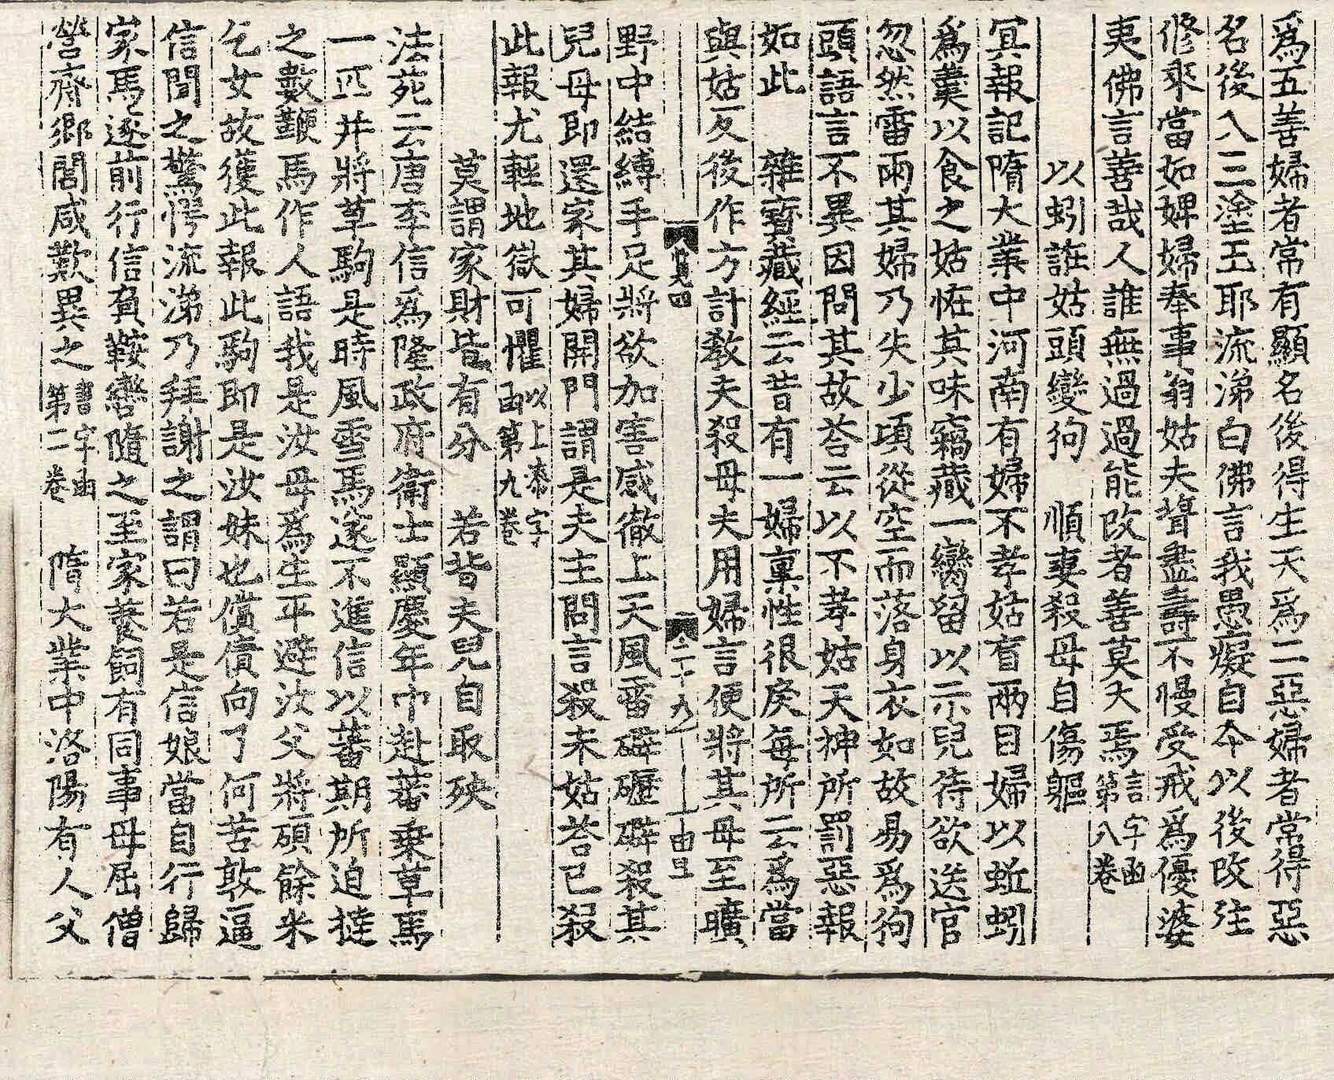 爲五善婦者常有顯名後得生天爲二惡婦者常得惡
名後入三塗玉耶流涕白佛言我愚癡自今以後改往
修來當如婢婦奉事翁姑夫壻盡壽不慢受戒爲優婆
夷佛言善哉人誰無過過能改者善莫大焉言字函第八卷
以蚓誑姑頭變狗　順妻殺母自傷軀
冥報記隋大業中河南有婦不孝姑盲兩目婦以蚯蚓
爲羹以食之姑恠其味竊藏一臠留以示兒待欲送官
忽然雷雨其婦乃失少頃從空而落身衣如故易爲狗
頭語言不異因問其故荅云以不孝姑天神所罰惡報
如此　雜寶藏經云昔有一婦稟性很戾每所云爲當
與姑反後作方計教夫殺母夫用婦言便將其母至曠
二十九　由旦
野中結縛手足將欲加害感徹上天風雷礔礰礔殺其
兒母即還家其婦開門謂是夫主問言殺未姑荅已殺
此報尤輕地獄可懼以上㭍字函第九卷
莫謂家財皆有分　若背夫兒自取殃
法苑云唐李信爲隆政府衛士顯慶年中赴蕃乗草馬
一匹并將草駒是時風雪馬遂不進信以蕃期所迫撻
之數鞭馬作人語我是汝母爲生平避汝父將碩餘米
乞女故獲此報此駒即是汝妹也償債向了何苦敦逼
信聞之驚愕流涕乃拜謝之謂曰若是信娘當自行歸
家馬遂前行信負鞍轡隨之至家養飼有同事母屈僧
營齋鄉閭咸歎異之書字函第二卷　隋大業中洛陽有人父